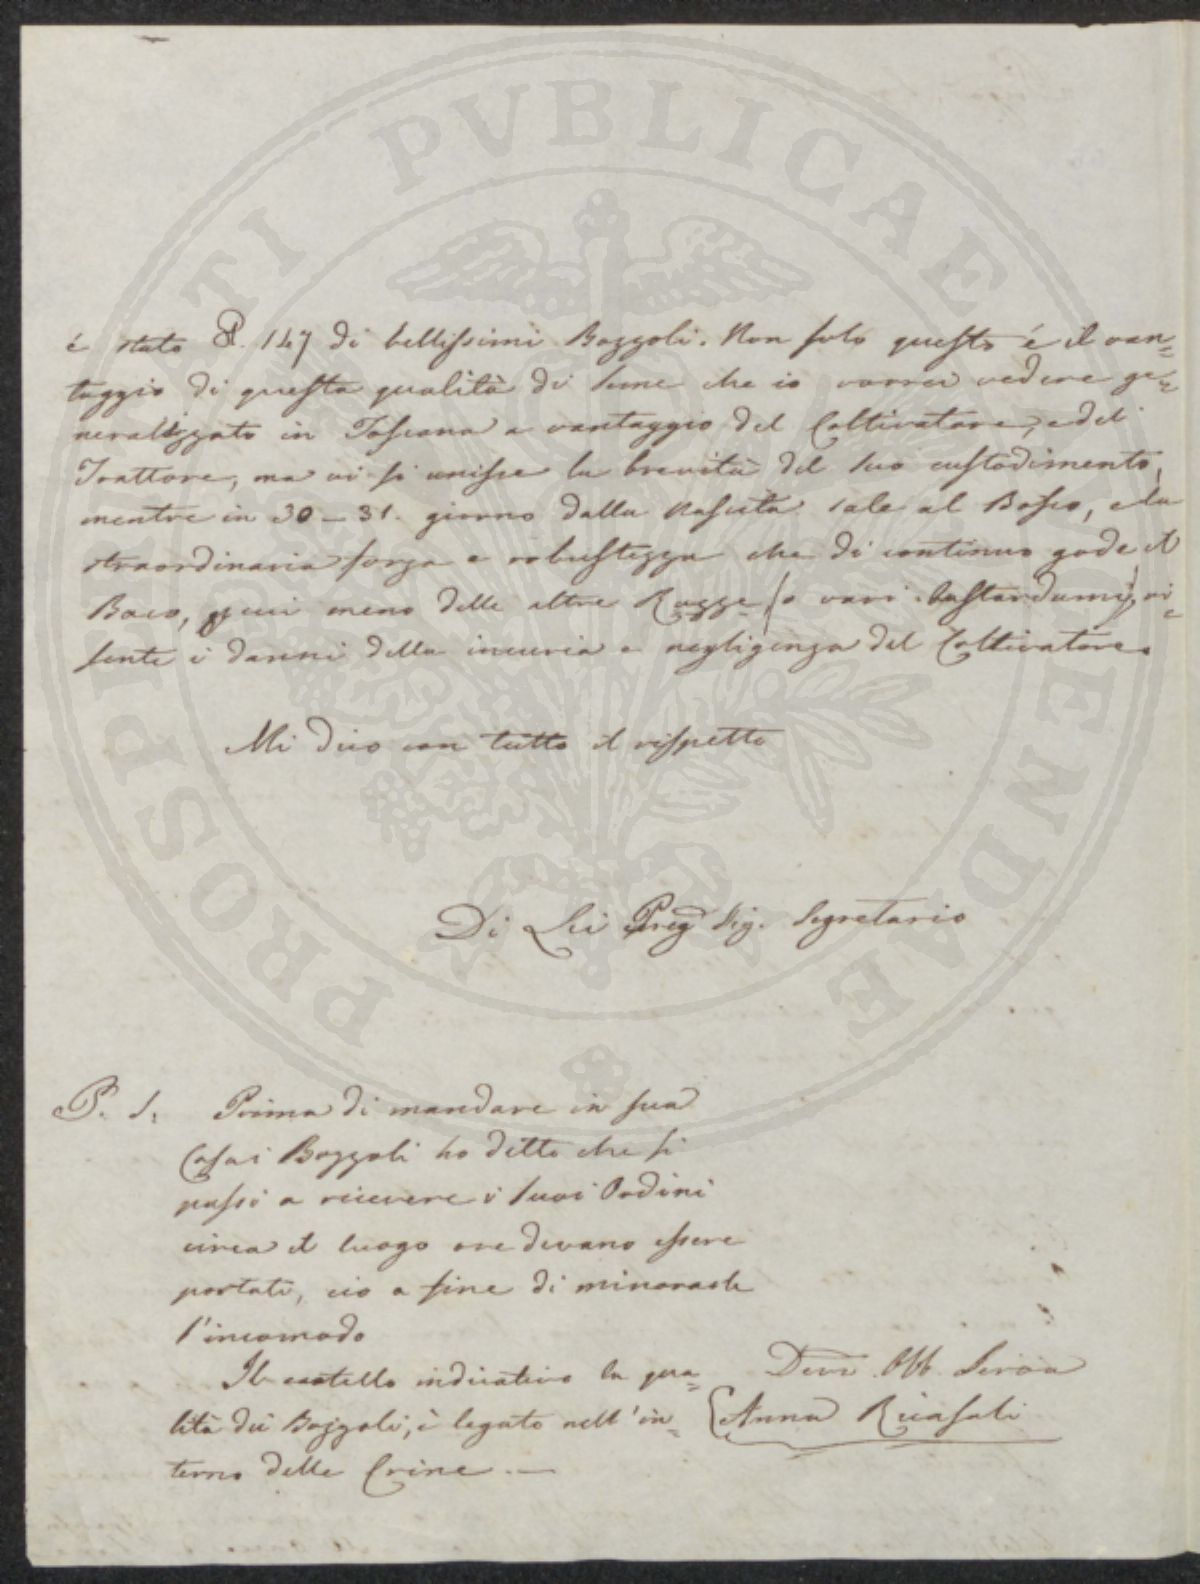 é stato ℔. 147 di bellissimi Bozzoli. Non solo questo é il van=
taggio di questa qualità di Seme che io vorrei vedere ge=
neralizzato in Toscana a vantaggio del Coltivatore, e del
Trattore, ma vi si unisce la brevità del suo custodimento,
mentre in 30 – 31. giorno dalla nascita sale al Bosco, e la
straordinaria forza e robustezza che di continuo gode il
Baco, per cui meno delle altre Razze (o vari bastardumi) ri=
sente i danni della incuria e negligenza del Coltivatore.
Mi dico con tutto il rispetto
Di Lei Preg Sig. Segretario
P. S. Prima di mandare in sua
Casa i Bozzoli ho detto che si
passi a ricevere i suoi Ordini
circa il luogo ove devano essere
portati, ciò a fine di minorarle
l'incomodo
Il cartello indicativo la qua=
lità dei Bozzoli, è legato nell'in=
terno delle Crine. —
Devᵐᵃ Obb. Serva
Anna Ricasoli
PROSPERITATI PVBLICAE AVGENDAE